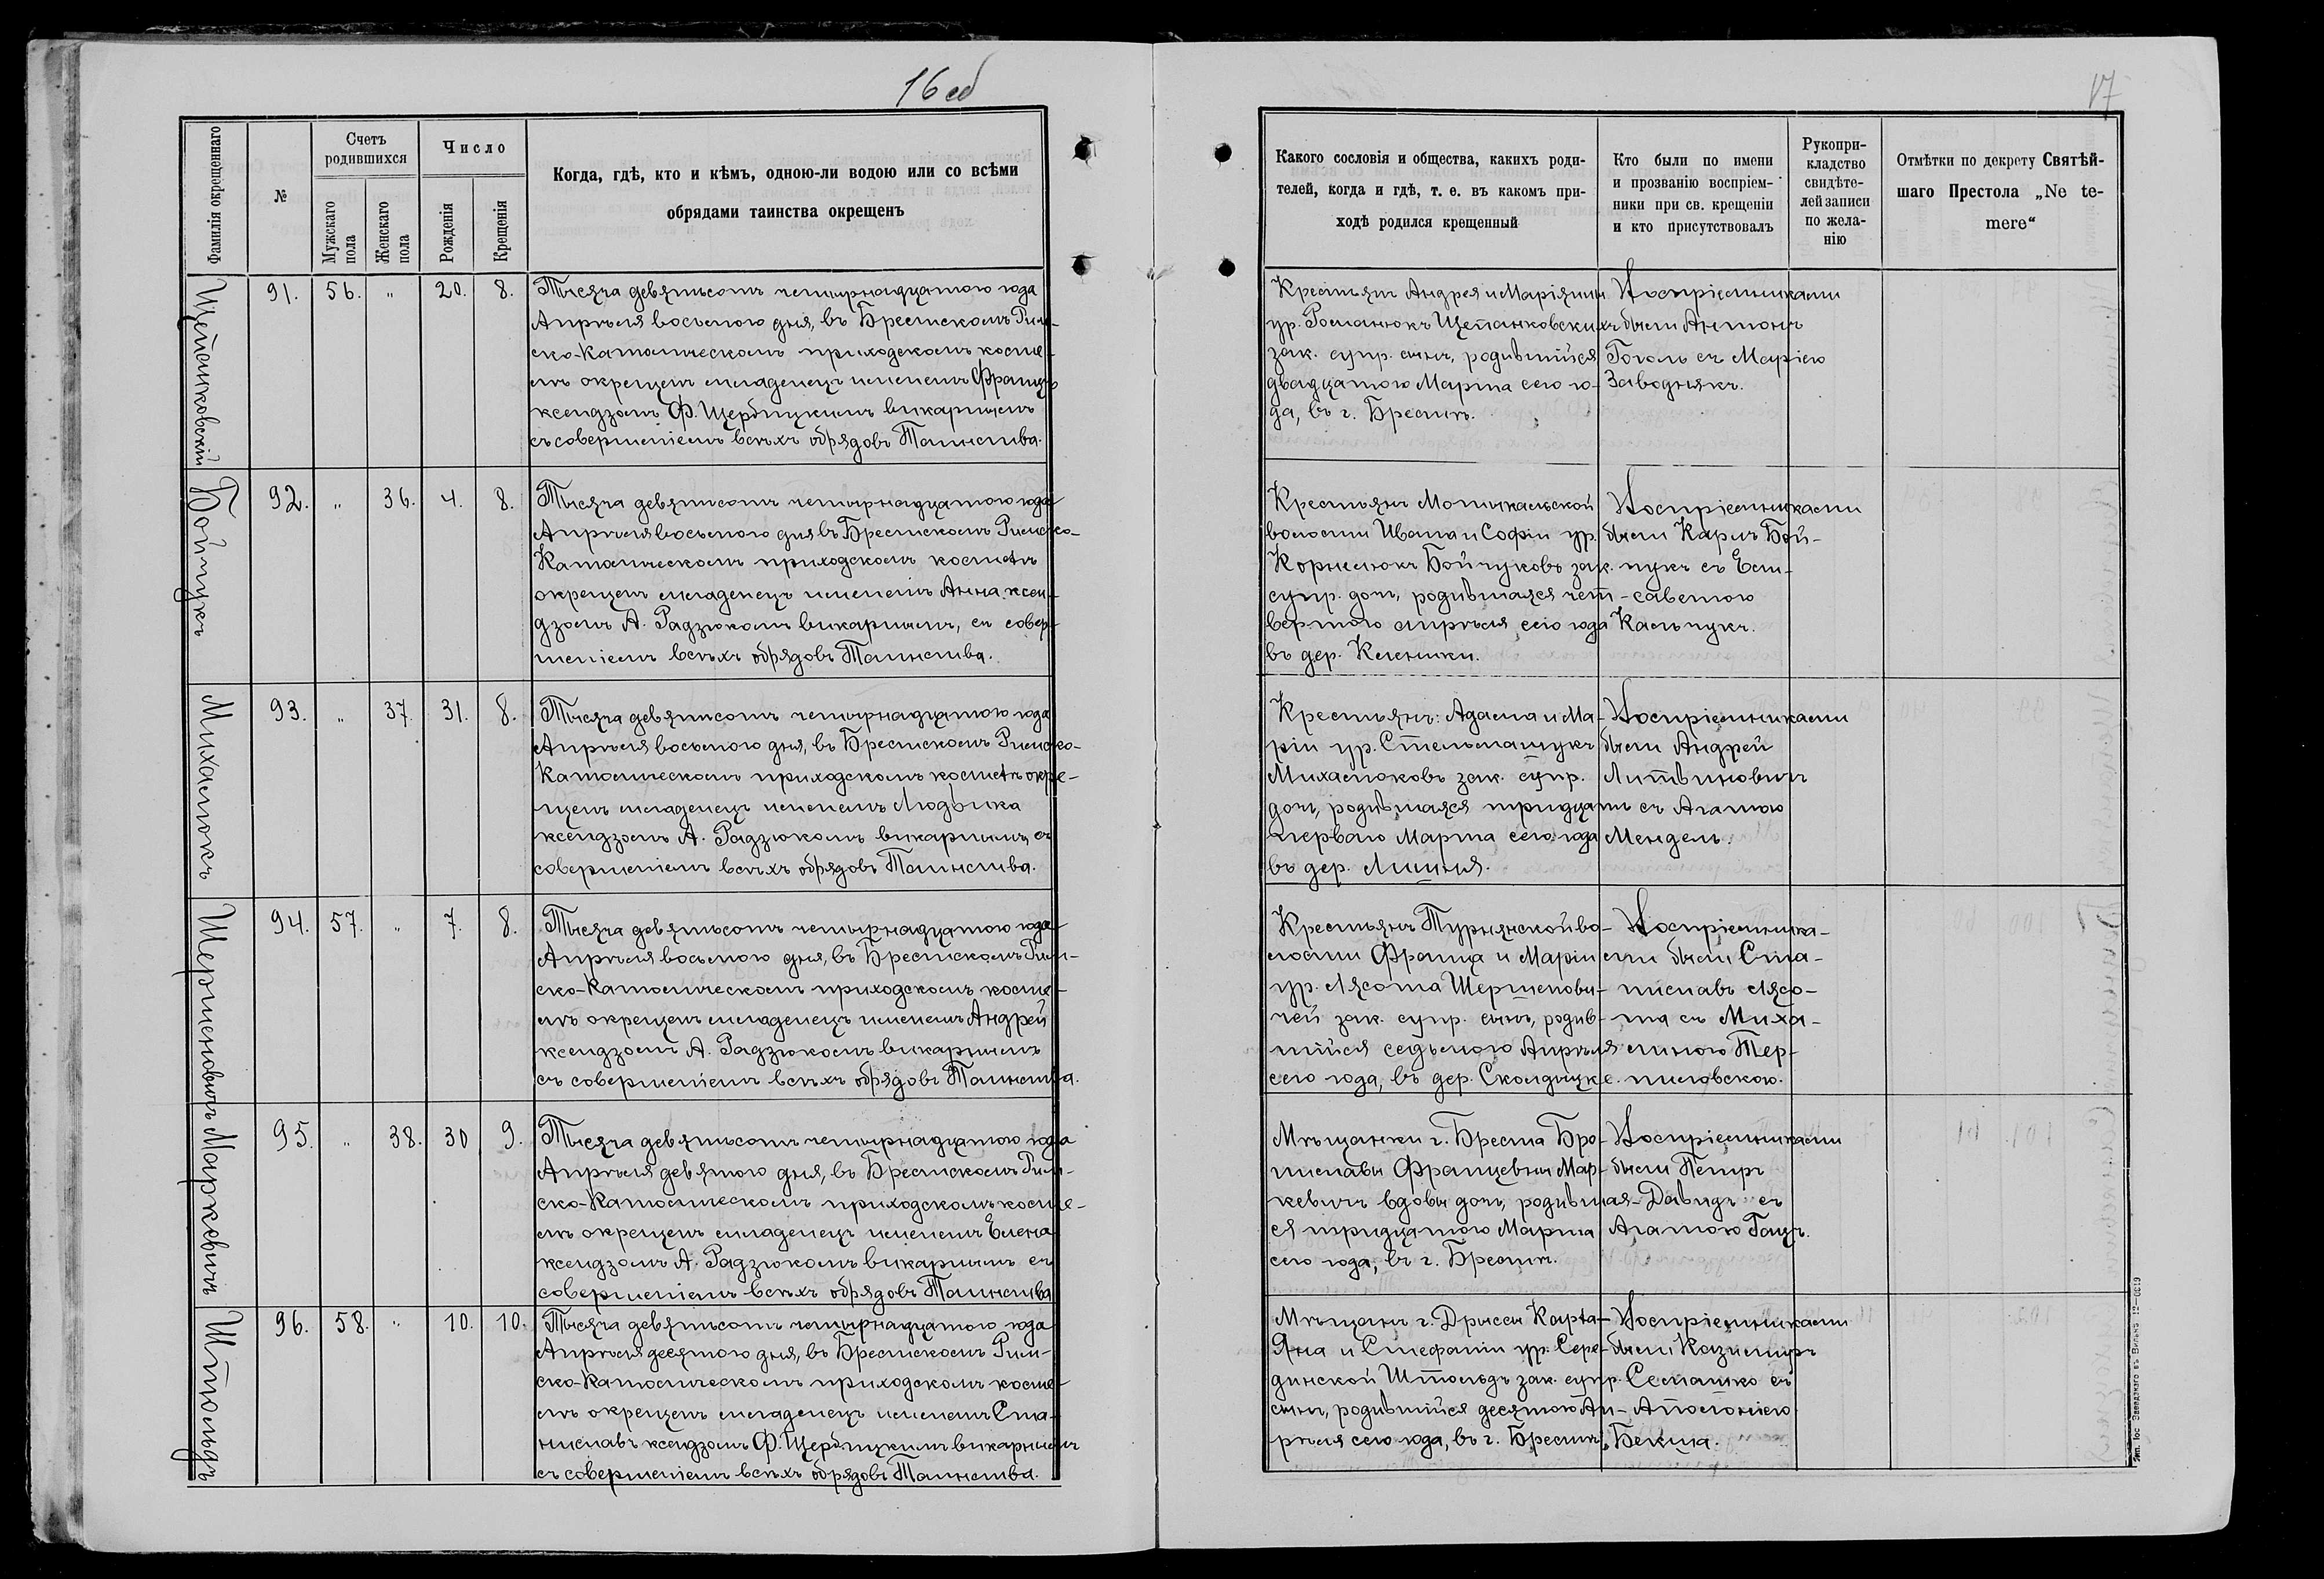 16 об
Фамилія окрещеннаго
№
Счетъ
родившихся
Мужскаго
пола
Женскаго
пола
Число
Рожденія
Крещенія
Когда, гдѣ, кто и кѣмъ, одною-ли водою или со всѣми
обрядами таинства окрещенъ
91. 56. „ 20. 8.
Тысяча девятьсотъ четырнадцатого года
Апрѣля восьмого дня, въ Брестскомъ Рим-
ско-Католическомъ приходскомъ косте-
лѣ окрещенъ младенецъ именемъ Францъ
ксендзомъ Ф. Щербицкимъ викарнымъ
съ совершеніемъ всѣхъ обрядовъ Таинства.
Бойчукъ
92. „ 36. 4. 8.
Тысяча девятьсотъ четырнадцатого года
Апрѣля восьмого дня въ Брестскомъ Римско-
Католическомъ приходскомъ костелѣ
окрещенъ младенецъ именемъ Анна ксен-
дзомъ А. Радзюкомъ викарнымъ, съ совер-
шеніемъ всѣхъ обрядовъ Таинства.
Михалюкъ
93. „ 37. 31. 8.
Тысяча девятьсотъ четырнадцатого года
Апрѣля восьмого дня, въ Брестскомъ Римско-
Католическомъ приходскомъ костелѣ окре-
щенъ младенецъ именемъ Людвика
ксендзомъ А. Радзюкомъ викарнымъ, съ
совершеніемъ всѣхъ обрядовъ Таинства.
Шершеновичъ
94. 57. „ 7. 8.
Тысяча девятьсотъ четырнадцатого года
Апрѣля восьмого дня, въ Брестскомъ Рим-
ско-Католическомъ приходскомъ косте-
лѣ окрещенъ младенецъ именемъ Андрей
ксендзомъ А. Радзюкомъ викарнымъ
съ совершеніемъ всѣхъ обрядовъ Таинства.
Маркевичъ
95. „ 38. 30 9.
Тысяча девятьсотъ четырнадцатого года
Апрѣля девятого дня, въ Брестскомъ Рим-
ско-Католическомъ приходскомъ косте-
лѣ окрещенъ младенецъ именемъ Елена
ксендзомъ А. Радзюкомъ викарнымъ съ
совершеніемъ всѣхъ обрядовъ Таинства
Штольдъ
96. 58. „ 10. 10.
Тысяча девятьсотъ четырнадцатого года
Апрѣля десятого дня, въ Брестскомъ Рим-
ско-Католическомъ приходскомъ косте-
лѣ окрещенъ младенецъ именемъ Ста-
ниславъ ксендзомъ Ф. Щербицкимъ викарнымъ
съ совершеніемъ всѣхъ обрядовъ Таинства.
17
Какого сословія и общества, какихъ роди-
телей, когда и гдѣ, т. е. въ какомъ при-
ходѣ родился крещенный
Кто были по имени
и прозванію воспріем-
ники при св. крещеніи
и кто присутствовалъ
Рукопри-
кладство
свидѣте-
лей записи
по жела-
нію
Отмѣтки по декрету Святѣй-
шаго Престола „Ne te-
mere“
Крестьянъ Андрея и Маріянны
ур. Романюкъ Щепанковскихъ
зак. супр. сынъ, родившійся
двадцатого Марта сего го-
да, въ г. Брестѣ.
Воспріемниками
были Антонъ
Гоголь съ Маріею
Заводнякъ.
Крестьянъ Мотыкальской
волости Ивана и Софіи ур.
Корнелюкъ Бойчуковъ зак.
супр. дочь, родившаяся чет-
вертого апрѣля сего года
въ дер. Клейники.
Воспріемниками
были Карлъ Бой-
чукъ съ Ели-
саветою
Кальчукъ.
Крестьянъ: Адама и Ма-
ріи ур. Стельмащукъ
Михалюковъ зак. супр.
дочь, родившаяся тридцать
перваго Марта сего года
въ дер.
Воспріемниками
были Андрей
Литвиновичъ
съ Агатою
Мендель.
Крестьянъ Турнянской во-
лости Франца и Маріи
ур. Лясота Шершенови-
чей зак. супр. сынъ, родив-
шійся седьмого Апрѣля
сего года, въ дер.
Воспріемника-
ми были Ста-
ниславъ Лясо-
та съ Миха-
линою Тер-
пиловскою.
Мѣщанки г. Бреста Бро-
ниславы Францевны Мар-
кевичъ вдовы дочь, родившая-
ся тридцатого Марта
сего года, въ г. Брестѣ.
Воспріемниками
были Петръ
Давидъ съ
Агатою Гацъ.
Мѣщанъ г. Дриссы Карла-
Яна и Стефаніи ур. Сере-
динской Штольдъ зак. супр.
сынъ, родившійся десятого Ап-
рѣля сего года, въ г. Брестѣ.
Воспріемниками
были Казимиръ
Семашко съ
Аполоніею
Бекиша.